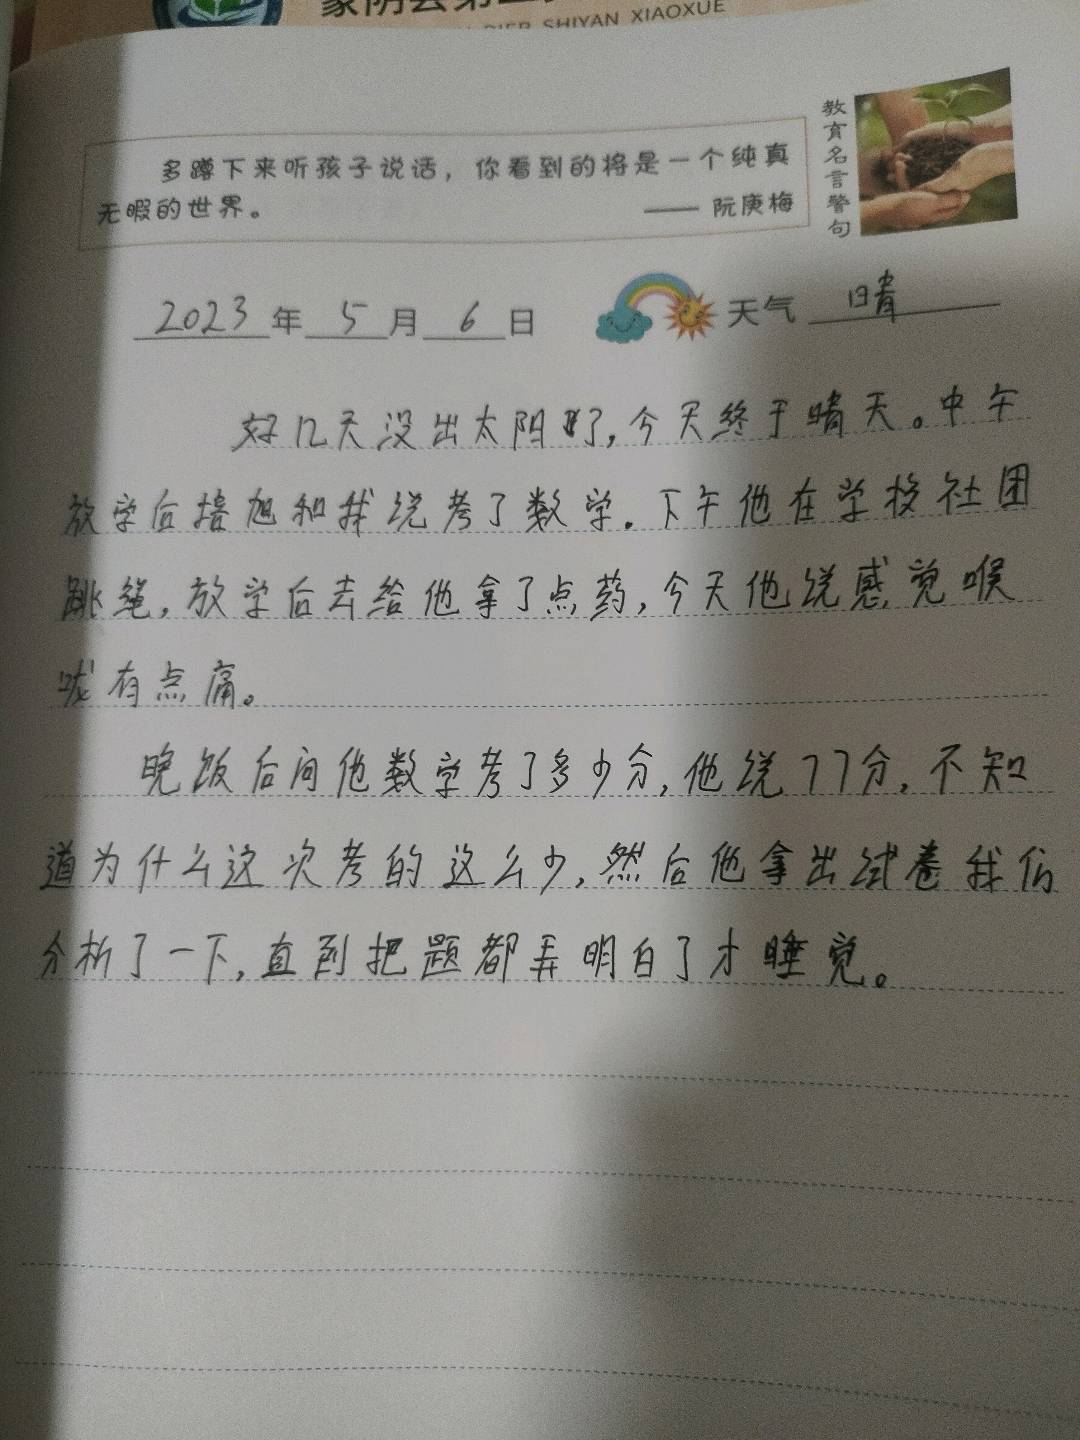 SHIYAN XIAOXUE
教育名言警句
多蹲下来听孩子说话，你看到的将是一个纯真
无暇的世界。
—— 阮庚梅
2023年5月6日 天气 晴
好几天没出太阳了,今天终于晴天。中午
放学后接旭和我说考了数学.下午他在学校社团
跳绳,放学后去给他拿了点药,今天他说感觉喉
咙有点痛。
晚饭后问他数学考了多少分,他说77分,不知
道为什么这次考的这么少,然后他拿出试卷我们
分析了一下,直到把题都弄明白了才睡觉。